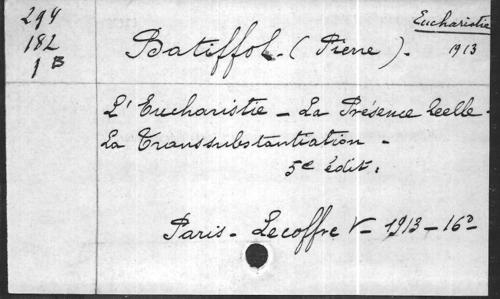 294
182
1 B
Eucharistie
1913
Batiffol. (Pierre).
L'Eucharistie - La Présence Réelle -
La Transsubstantiation -
5e édit.
Paris - Lecoffre V - 1913 - 16o